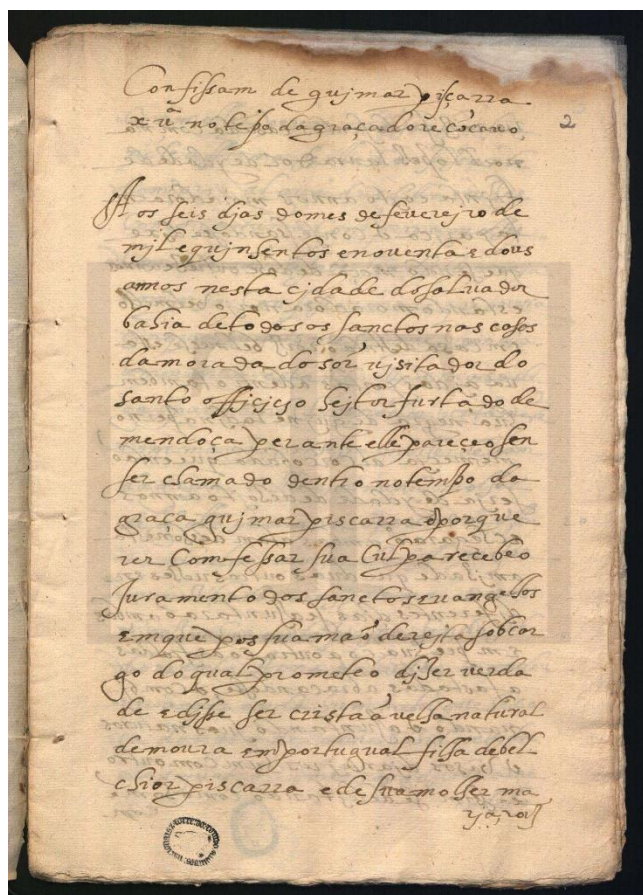 Confissam de guimar piçarra
xpã uª no tempo da graça do reconcavo
2
Aos seis djas do mes de fevereiro de
mil e quinsentos e noventa e dous
annos nesta cidade do salvador
bahia de todos os sanctos nas casas
da morada do sor visitador do
santo officjo heitor furtado de
mendoça perante elle pareçeo sen
ser chamado dentro no tempo da
graça guimar piscarra & por que
rer comfessar sua culpa recebeo
Juramento dos sanctos evangelhos
em que pos sua mão dereita sob car
go do qual prometeo dizer verda
de e disse ser cristaã velha natural
de moura em portugual filha de bel
chior piscarra e de sua molher ma